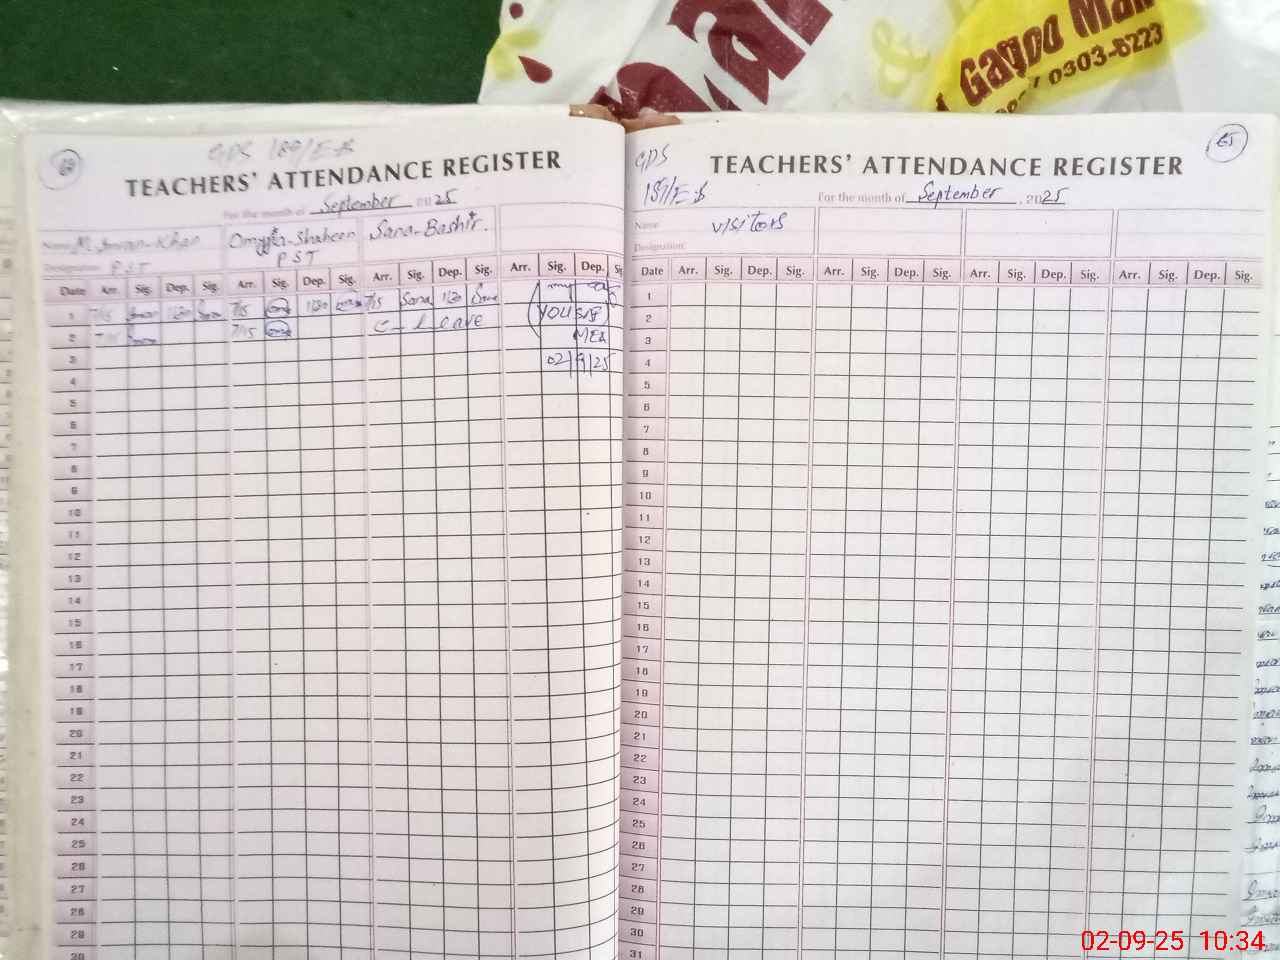 Gagoo Man
0303-8223
GPS 189/E-B
TEACHERS' ATTENDANCE REGISTER
For the month of September 2025
Name M. Imran-Khan
Shaheen
Sana-Bashir.
Designation PST
PST
Date Arr. Sig. Dep. Sig. Arr. Sig. Dep. Sig. Arr. Sig. Dep. Sig. Arr. Sig. Dep. S
1 7/15 Imran 1:30 Imran 7/15 1:30 7/15 Sana 1:30 Sana
2 7/15 Imran 7/15 C-Leave
YOUSAF
MEA
3 02/9/25
4
5
6
7
8
9
10
11
12
13
14
15
16
17
18
19
20
21
22
23
24
25
26
27
28
29
30
65
GPS
189/E-B
TEACHERS' ATTENDANCE REGISTER
For the month of September, 2025
Name visitors
Designation:
Date Arr. Sig. Dep. Sig. Arr. Sig. Dep. Sig. Arr. Sig. Dep. Sig. Arr. Sig. Dep. Sig.
1
2
3
4
5
6
7
8
9
10
11
12
13
14
15
16
17
18
19
20
21
22
23
24
25
26
27
28
29
30
31
02-09-25 10:34